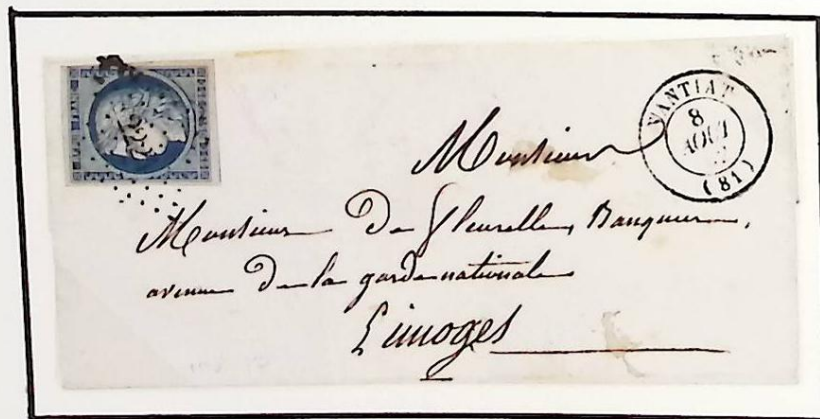 NANTIAT
8
AOUT
(81)
Monsieur
Monsieur De fleurelle, Banquier,
avenue De la garde nationale
Limoges